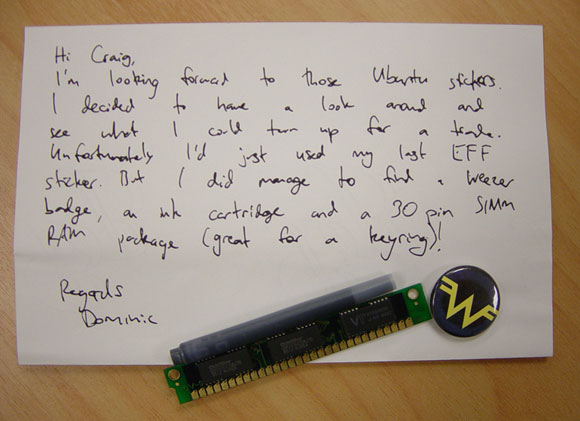 Hi Craig,
I'm looking forward to those Ubuntu stickers.
I decided to have a look around and
see what I could turn up for a trade.
Unfortunately I'd just used my last EFF
sticker. But I did manage to find a weezer
badge, an ink cartridge and a 30 pin SIMM
RAM package (great for a keyring)!
Regards
Dominic
W